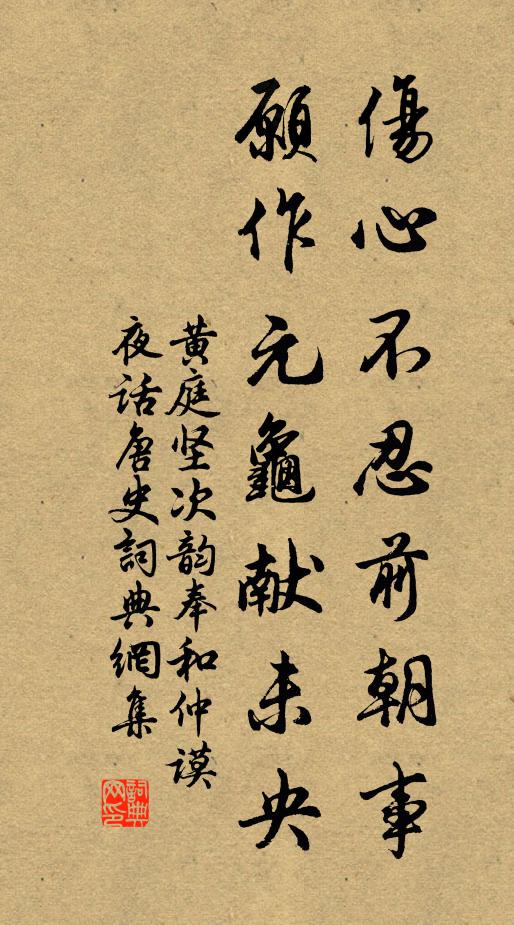 傷心不忍前朝事
願作元龜献未央
黄庭坚次韵奉和仲谟
夜话唐史詞典網集
詞典网印